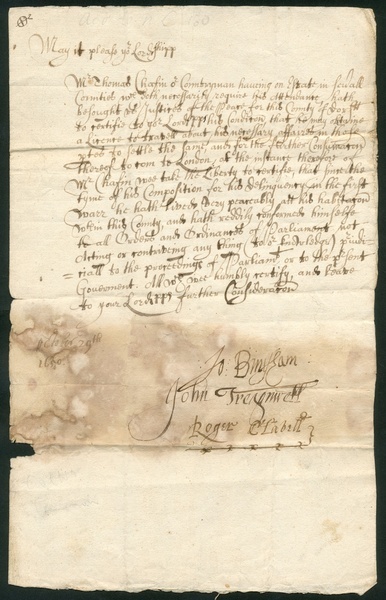 May it please yor Lordshipp
Mr Thomas Chafin or Countryman having an Estate in sevall
Counties wch doth necessarily require his Attendance hath
besought us Justices of the Peace for this County of Dorsett
to certifie to yor Lordspp his condition, that he may obtyne
a Licence to travell about his necessary affaires in those
ptes to settle the same, and for the further
thereof to com to London, at the instance therefore of
Mr Chafin wee take the Liberty to certifie, that since the
tyme of his Composition for his delinquency in the first
warr he hath lived very peaceably at his habitacon
wthin this County, and hath redily conformed himselfe
to all Orders and Ordinances of Parliament not
Acting or contriving any thing to or knowledge preiudi
=ciall to the proceedings of Parliamt or to the pesent
Government. All wch wee humbly certify, and leave
to yor Lordspps further Consideration
October 29th
1650
Jo: Bingham
John Tregonwell
Roger